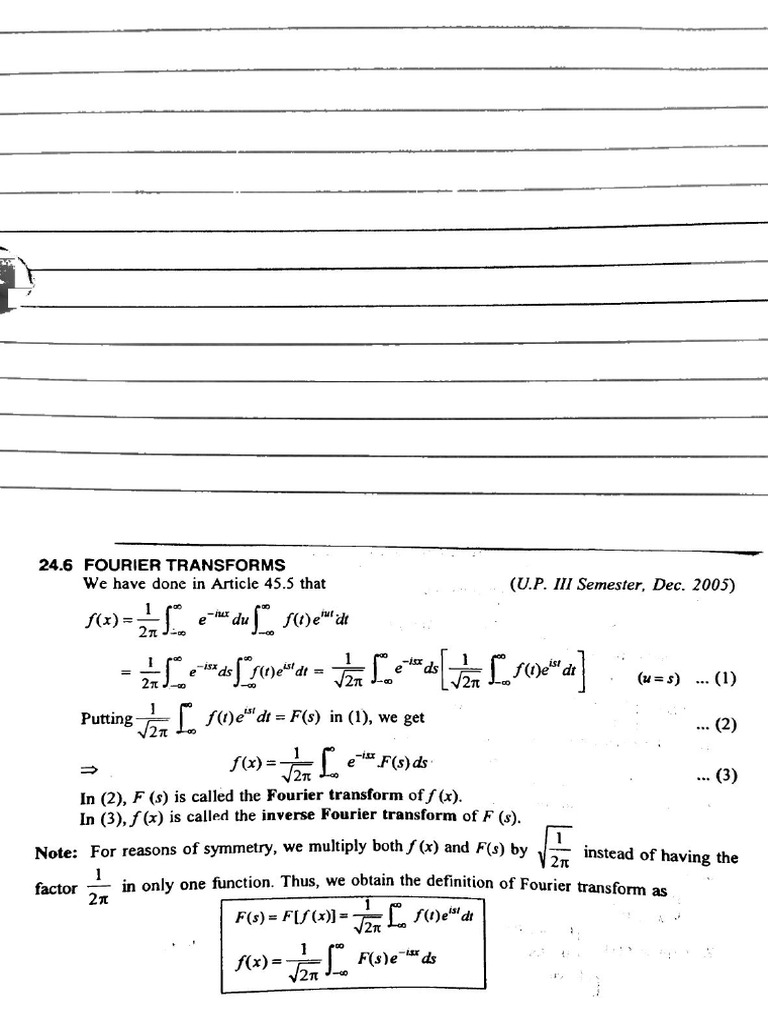 24.6 FOURIER TRANSFORMS
We have done in Article 45.5 that (U.P. III Semester, Dec. 2005)
f(x) = 1/2π ∫_{-∞}^{∞} e^{-iux} du ∫_{-∞}^{∞} f(t) e^{iut} dt
= 1/2π ∫_{-∞}^{∞} e^{-isx} ds ∫_{-∞}^{∞} f(t) e^{ist} dt = 1/√2π ∫_{-∞}^{∞} e^{-isx} ds [1/√2π ∫_{-∞}^{∞} f(t) e^{ist} dt] (u = s) ... (1)
Putting 1/√2π ∫_{-∞}^{∞} f(t) e^{ist} dt = F(s) in (1), we get ... (2)
⇒ f(x) = 1/√2π ∫_{-∞}^{∞} e^{-isx} .F(s) ds ... (3)
In (2), F (s) is called the Fourier transform of f (x).
In (3), f (x) is called the inverse Fourier transform of F (s).
Note: For reasons of symmetry, we multiply both f (x) and F(s) by √(1/2π) instead of having the
factor 1/2π in only one function. Thus, we obtain the definition of Fourier transform as
F(s) = F[f (x)] = 1/√2π ∫_{-∞}^{∞} f(t) e^{ist} dt
f(x) = 1/√2π ∫_{-∞}^{∞} F(s) e^{-isx} ds